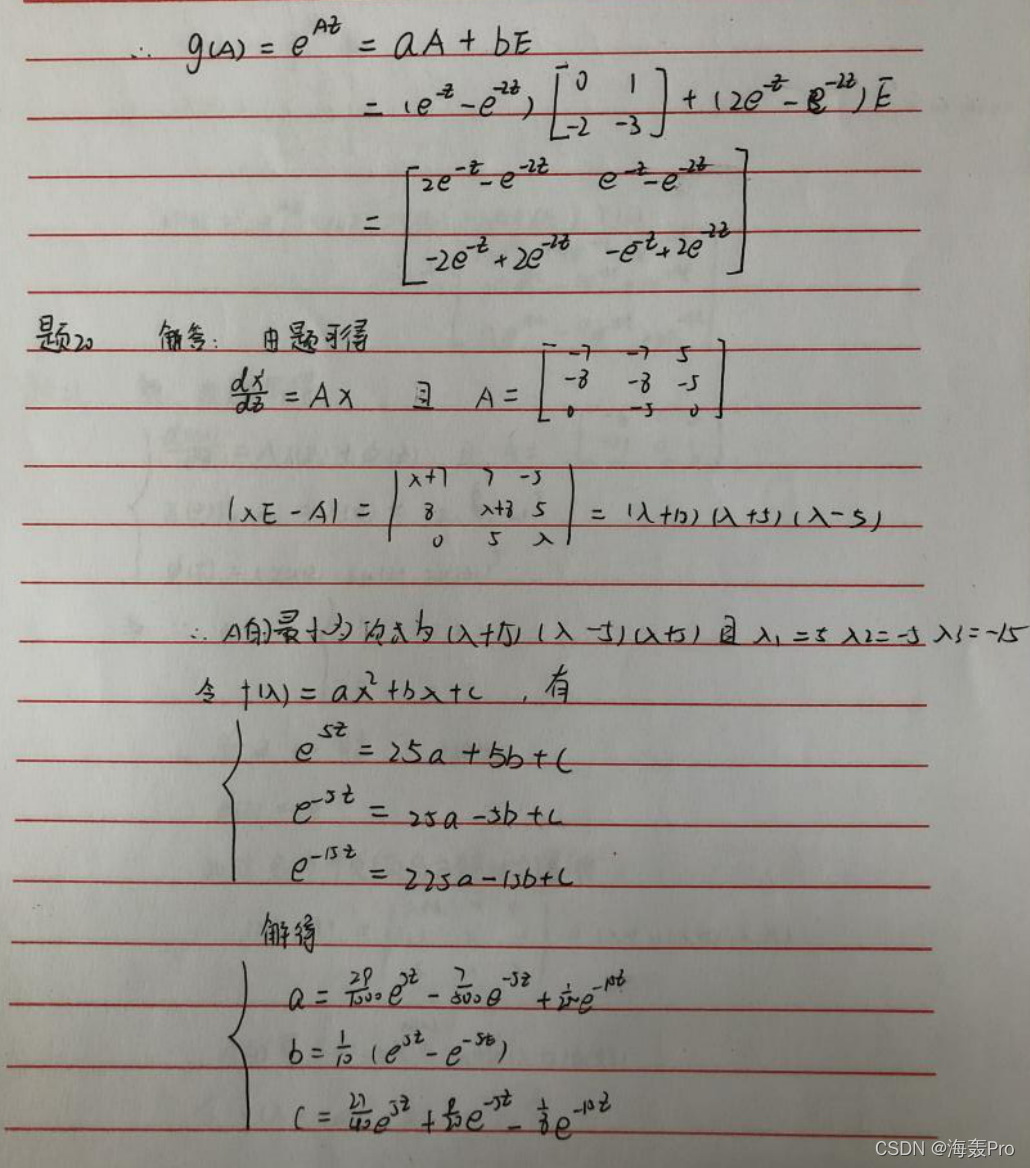 ∴ g(A) = e^{At} = aA + bE
= (e^{-t} - e^{-2t}) [ 0 1 ; -2 -3 ] + (2e^{-t} - e^{-2t}) E
= [ 2e^{-t} - e^{-2t} e^{-t} - e^{-2t} ; -2e^{-t} + 2e^{-2t} -e^{-t} + 2e^{-2t} ]
题20 解答: 由题可得
dx/dt = Ax 且 A = [ -7 -7 5 ; -8 -8 -5 ; 0 -5 0 ]
|λE - A| = | λ+7 7 -5 ; 8 λ+8 5 ; 0 5 λ | = (λ+15) (λ+5) (λ-5)
∴ A的最小多项式为 (λ+15) (λ-5) (λ+5) 且 λ1 = 5 λ2 = -5 λ3 = -15
令 f(λ) = aλ² + bλ + c , 有
e^{5t} = 25a + 5b + c
e^{-5t} = 25a - 5b + c
e^{-15t} = 225a - 15b + c
解得
a = e^{5t} - e^{-5t} + e^{-15t}
b = 1/10 (e^{5t} - e^{-5t})
c = e^{5t} + e^{-5t} - 1/8 e^{-15t}
CSDN @海轰Pro